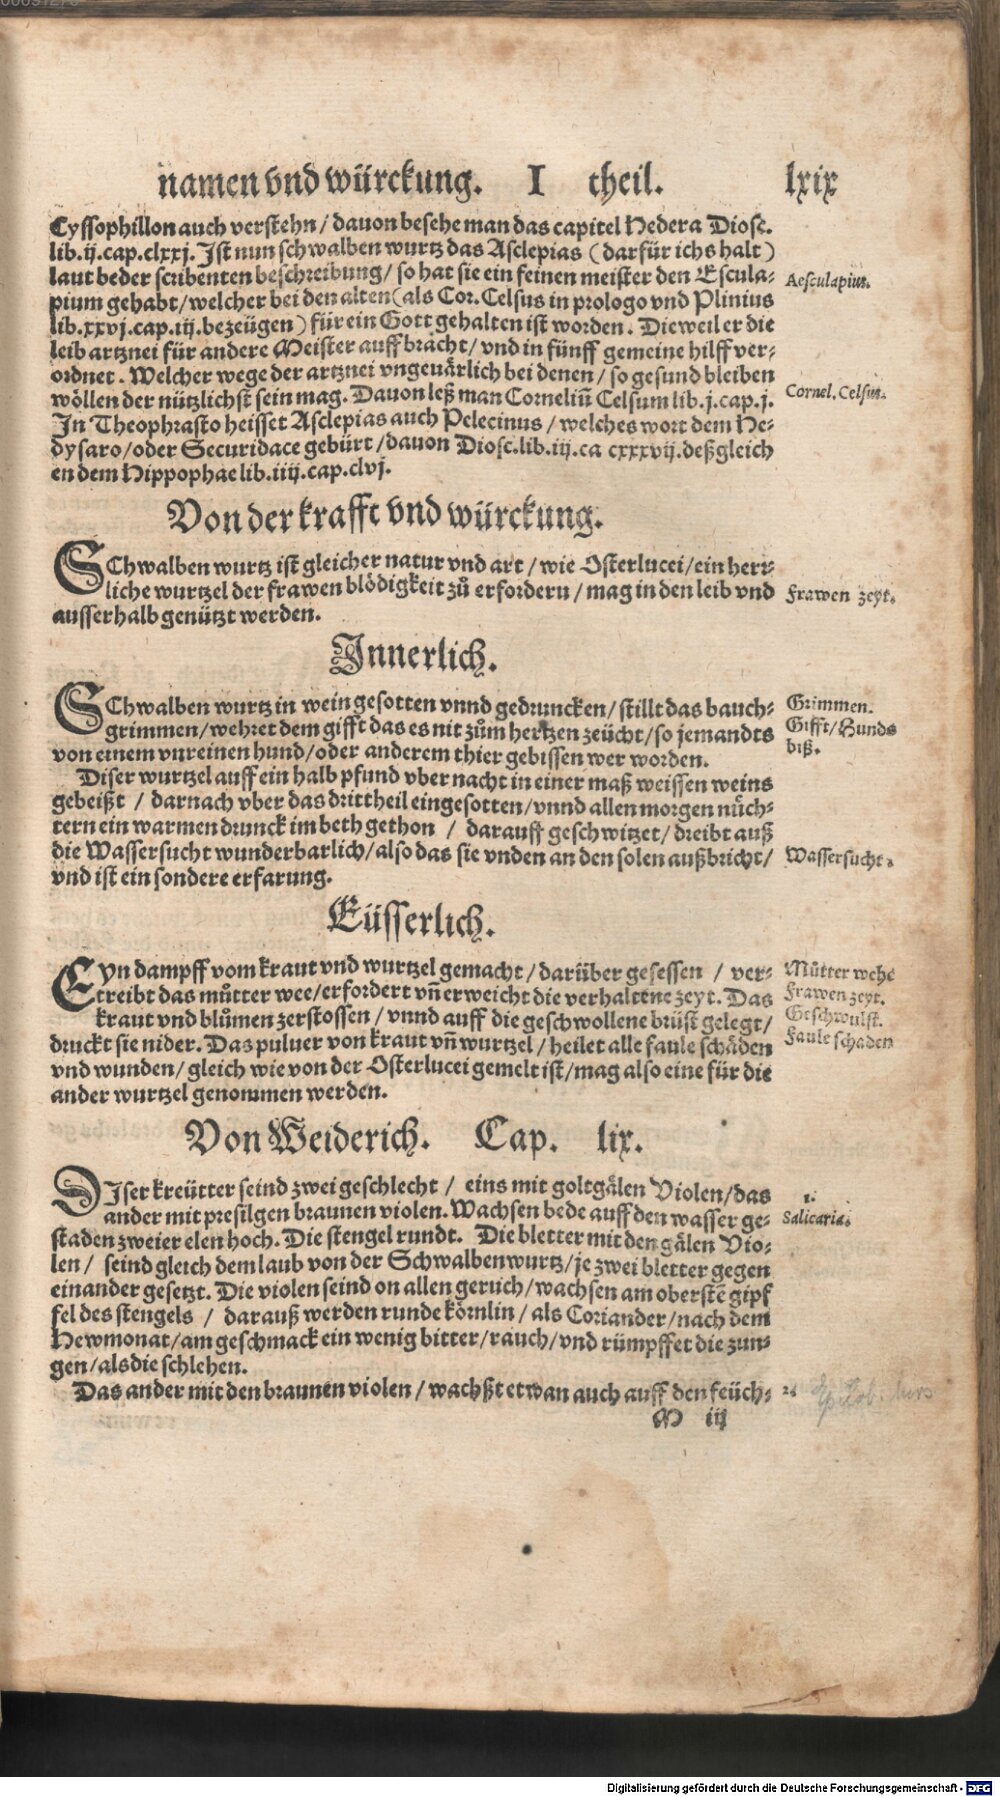 namen vnd würckung. I theil. lxix
Cyssophillon auch verstehn / dauon besehe man das capitel Hedera Diosc.
lib.ij.cap.clxxj. Ist nun schwalben wurtz das Asclepias (darfür ichs halt)
laut beder scribenten beschreibung / so hat sie ein feinen meister den Escula-
Aesculapius.
pium gehabt / welcher bei den alten (als Cor. Celsus in prologo vnd Plinius
lib.xxvj.cap.iij. bezeügen) für ein Gott gehalten ist worden. Dieweil er die
leib artznei für andere Meister auffbracht / vnd in fünff gemeine hilff ver-
ordnet. Welcher wege der artznei vngeuärlich bei denen / so gesund bleiben
Cornel. Celsus.
wöllen der nützlichst sein mag. Dauon leß man Corneliū Celsum lib.j.cap.j.
In Theophrasto heisset Asclepias auch Pelecinus / welches wort dem He-
dysaro / oder Securidace gebürt / dauon Diosc.lib.iij.ca cxxxvij. deßgleich
en dem Hippophae lib.iiij.cap.clvj.
Von der krafft vnd würckung.
SChwalben wurtz ist gleicher natur vnd art / wie Osterlucei / ein herr-
liche wurtzel der frawen blödigkeit zů erfordern / mag in den leib vnd
Frawen zeyt.
ausserhalb genützt werden.
Innerlich.
SChwalben wurtz in wein gesotten vnnd gedruncken / stillt das bauch-
Grimmen.
grimmen / wehret dem gifft das es nit zům hertzen zeücht / so jemandts
Gifft / Hunds
von einem vnreinen hund / oder anderem thier gebissen wer worden.
biß.
Diser wurtzel auff ein halb pfund vber nacht in einer maß weissen weins
gebeißt / darnach vber das drittheil eingesotten / vnnd allen morgen nüch-
tern ein warmen drunck im beth gethon / darauff geschwitzet / dreibt auß
die Wassersucht wunderbarlich / also das sie vnden an den solen außbricht /
Wassersucht.
vnd ist ein sondere erfarung.
Eüsserlich.
EYn dampff vom kraut vnd wurtzel gemacht / darüber gesessen / ver-
Můtter wehe
treibt das můtter wee / erfordert vñ erweicht die verhaltene zeyt. Das
Frawen zeyt.
kraut vnd blůmen zerstossen / vnnd auff die geschwollene brüst gelegt /
Geschwulst.
druckt sie nider. Das puluer von kraut vñ wurtzel / heilet alle faule schäden
Faule schaden
vnd wunden / gleich wie von der Osterlucei gemelt ist / mag also eine für die
ander wurtzel genommen werden.
Von Weiderich. Cap. lix.
DIser kreütter seind zwei geschlecht / eins mit goltgälen Violen / das
1.
ander mit presilgen braunen violen. Wachsen bede auff den wasser ge-
Salicaria.
staden zweier elen hoch. Die stengel rundt. Die bletter mit den gälen Vio-
len / seind gleich dem laub von der Schwalbenwurtz / je zwei bletter gegen
einander gesetzt. Die violen seind on allen geruch / wachsen am oberstē gipf
fel des stengels / darauß werden runde körnlin / als Coriander / nach dem
Hewmonat / am geschmack ein wenig bitter / rauch / vnd rümpffet die zun-
gen / als die schlehen.
Das ander mit den braunen violen / wachßt etwan auch auff den feüch-
2.
M iij
Digitalisierung gefördert durch die Deutsche Forschungsgemeinschaft - DFG